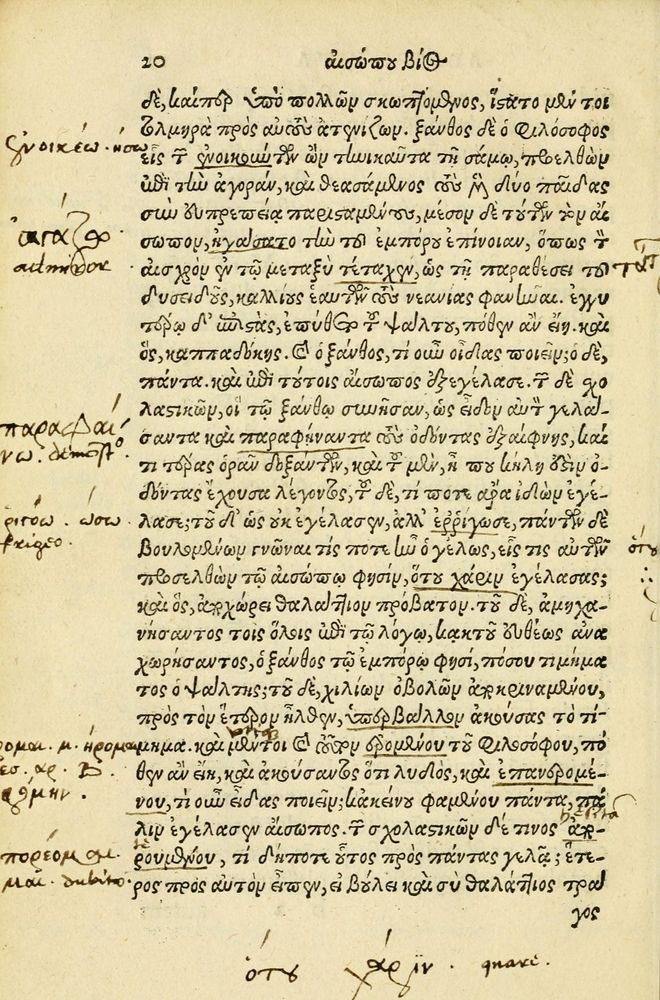 20 αἰσώπου βίος
δὲ, καίπερ ὑπὸ πολλῶν σκωπτόμενος, ἵστατο μέν τοι
τολμηρὰ πρὸς αὐτοὺς ἀτενίζων. ξάνθος δὲ ὁ φιλόσοφος
εἷς τῶν ἐνοικούντων ὢν τηνικαῦτα τῇ σάμῳ, προελθὼν
ἐπὶ τὴν ἀγορὰν, καὶ θεασάμενος τοὺς μὲν δύο παῖδας
σὺν εὐπρεπείᾳ παρισαμένους, μέσον δὲ τούτων τὸν αἴ
σωπον, ἠγάσατο τὴν τοῦ ἐμπόρου ἐπίνοιαν, ὅπως τὸν
αἰσχρὸν ἐν τῷ μεταξὺ τέταχεν, ὡς τῇ παραθέσει τοῦ
δυσειδοῦς, καλλίους ἑαυτῶν τοὺς νεανίας φανῆναι. ἐγγυ
τέρω δ' ἐπιστὰς, ἐπύθετο τοῦ ψάλτου, πόθεν ἂν εἴη. καὶ
ὃς, καππαδόκης. καὶ ὁ ξάνθος, τί οὖν οἶδας ποιεῖν; ὁ δὲ,
πάντα. καὶ ἐπὶ τούτοις αἴσωπος ἐξεγέλασε. τῶν δὲ σχο
λαστικῶν, οἳ τῷ ξάνθῳ συνῆσαν, ὡς εἶδον αὐτὸν γελά-
σαντα καὶ παραφήναντα τοὺς ὀδόντας ἐξαίφνης, καί
τι τέρας ὁρᾶν δοξάντων, καὶ τοῦ μὲν, ἦ που κήλη ἐστὶν ὀ-
δόντας ἔχουσα λέγοντος, τοῦ δὲ, τί ποτε ἄρα ἰδὼν ἐγέ-
λασε; τοῦ δ' ὡς οὐκ ἐγέλασεν, ἀλλ' ἐρρίγωσε, πάντων δὲ
βουλομένων γνῶναι τίς ποτε ἦν ὁ γέλως, εἷς τις αὐτῶν
προσελθὼν τῷ αἰσώπῳ φησίν, ὅτου χάριν ἐγέλασας;
καὶ ὃς, ἀποχώρει θαλάττιον πρόβατον. τοῦ δὲ, ἀμηχα-
νήσαντος τοῖς ὅλοις ἐπὶ τῷ λόγῳ, κἀκ τοῦ εὐθέως ἀνα
χωρήσαντος, ὁ ξάνθος τῷ ἐμπόρῳ φησί, πόσου τιμήμα
τος ὁ ψάλτης; τοῦ δὲ, χιλίων ὀβολῶν ἀποκριναμένου,
πρὸς τὸν ἕτερον ἦλθεν, ὑπερβάλλον ἀκούσας τὸ τί-
μημα. καὶ μέντοι καὶ τοῦτον ἐρομένου τοῦ φιλοσόφου, πό
θεν ἂν εἴη, καὶ ἀκούσαντος ὅτι λυδὸς, καὶ ἐπανερομέ-
νου, τί οὖν εἶδας ποιεῖν; κἀκείνου φαμένου πάντα, πά
λιν ἐγέλασεν αἴσωπος. τῶν σχολαστικῶν δέ τινος ἀπο-
ρουμένου, τί δήποτε οὗτος πρὸς πάντας γελᾷ; ἕτε-
ρος πρὸς αὐτὸν εἶπεν, εἰ βούλει καὶ σὺ θαλάττιος τρά
γος
ὅτου χάριν. quare.